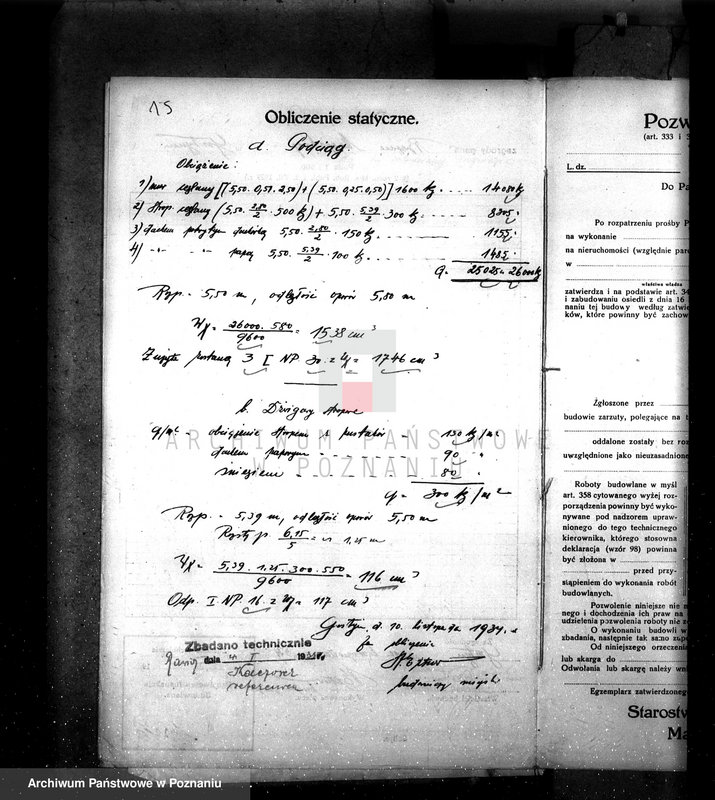 15
Obliczenie statyczne.
a. Podciąg
Obciążenie:
1) mur ceglany [(5,50 . 0,51 . 2,50) + (5,50 . 0,25 . 0,50)] 1600 kg .... 14080 kg
2) Strop (5,50 . 2,80/2 . 500 kg) + 5,50 . 5,39/2 . 300 kg 8305 "
3) dachem pokrytym 5,50 . 2,80/2 . 150 kg 1155 "
4) " " papą 5,50 . 5,39/2 . 100 kg 1485 "
Q = 25025 = 26000 kg
Rozp. = 5,50 m, odległość opór 5,80 m
Wx = 26000 . 580 / 9600 = 1538 cm³
Zużyte zostaną 3 I NP 30 z Wx = 1746 cm³
b. Dźwigary stropowe
q/m² = obciążenie stropem 130 kg/m²
dachem papowym 90 "
śniegiem 80 "
q = 300 kg/m²
Rozp. = 5,39 m, odległość opór 5,50 m
6,15/5 = ~ 1,25 m
Wx = 5,39 . 1,25 . 300 . 550 / 9600 = 116 cm³
Odp. I NP. 16 z Wx = 117 cm³
Gostyń, d. 10. listopada 1934.
za obliczenie
budowniczy miejski
Zbadano technicznie
dnia
referent
ARCHIWUM PAŃSTWOWE
W POZNANIU
Pozw
(art. 333 i 3
L. dz.
Do Pa
Po rozpatrzeniu prośby P
na wykonanie
na nieruchomości (względnie parc
w
właściwa władza
zatwierdza i na podstawie art. 34
i zabudowaniu osiedli z dnia 16
naniu tej budowy według zatwie
ków, które powinny być zachow
Zgłoszone przez
budowie zarzuty, polegające na t
oddalone zostały bez roz
uwzględnione jako nieuzasadnione
Roboty budowlane w myśl
art. 358 cytowanego wyżej roz-
porządzenia powinny być wyko-
nywane pod nadzorem upraw-
nionego do tego technicznego
kierownika, którego stosowna
deklaracja (wzór 98) powinna
być złożona w
przed przy-
stąpieniem do wykonania robót
budowlanych.
Pozwolenie niniejsze nie n
nego i dochodzenia ich praw na
udzielenia pozwolenia roboty nie z
O wykonaniu budowli w
zbadania, następnie tak samo zapa
Od niniejszego orzeczenia
lub skarga do
Odwołania lub skargę należy wni
Egzemplarz zatwierdzonego
Starostw
Ma
Archiwum Państwowe w Poznaniu